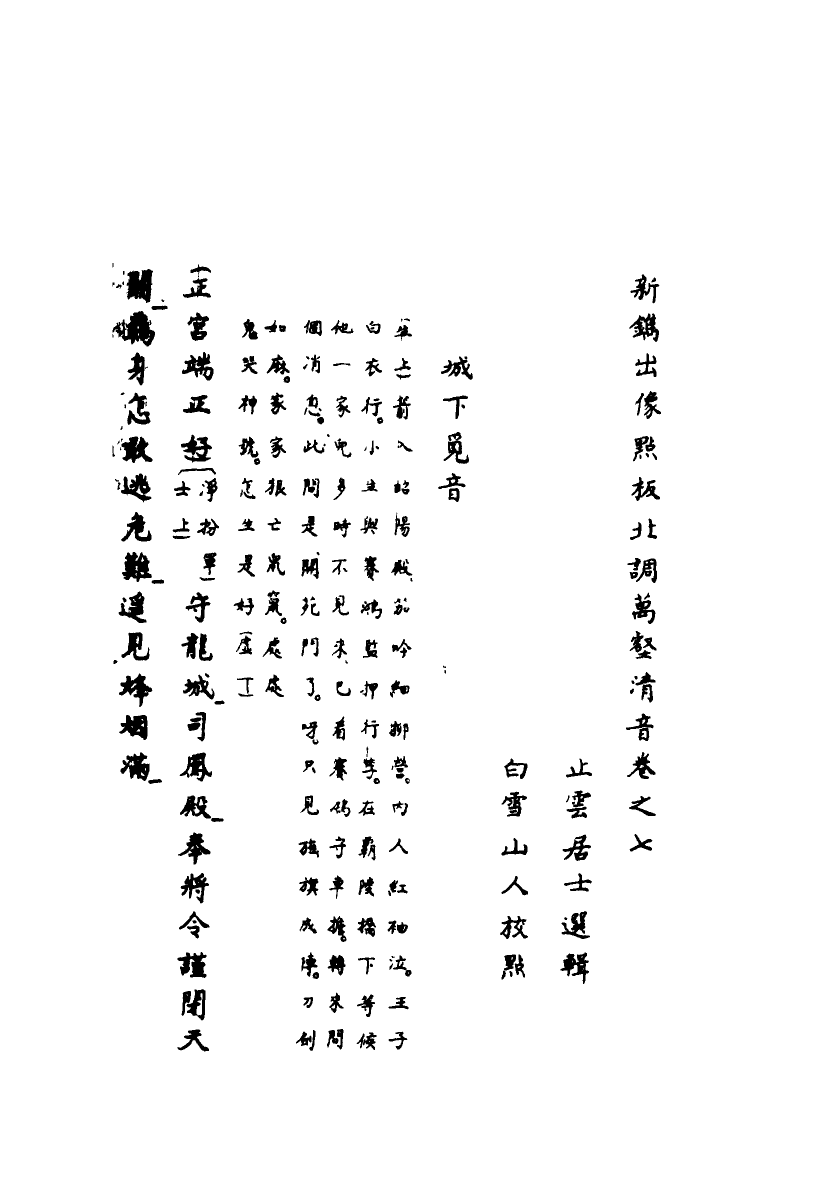 新鐫出像點板北調萬壑清音卷之七
止雲居士選輯
白雪山人校點
城下覓音
上箭入昭陽殿笳吟細柳營。內人紅袖泣。王子
白衣行。小生與賽鴻監押行李。在霸陵橋下等候
他一家兒多時不見來已着賽鴻守車擔。轉來問
個消息。此間是開苑門了。呀只見旌旗成陣。刀劍
如麻。家家狼亡鼠竄。處處
鬼哭神號。怎生是好虛下
正宮端正好淨扮軍士上守龍城司鳳殿奉將令謹閉天
關身怎敢逃危難遥見烽烟滿